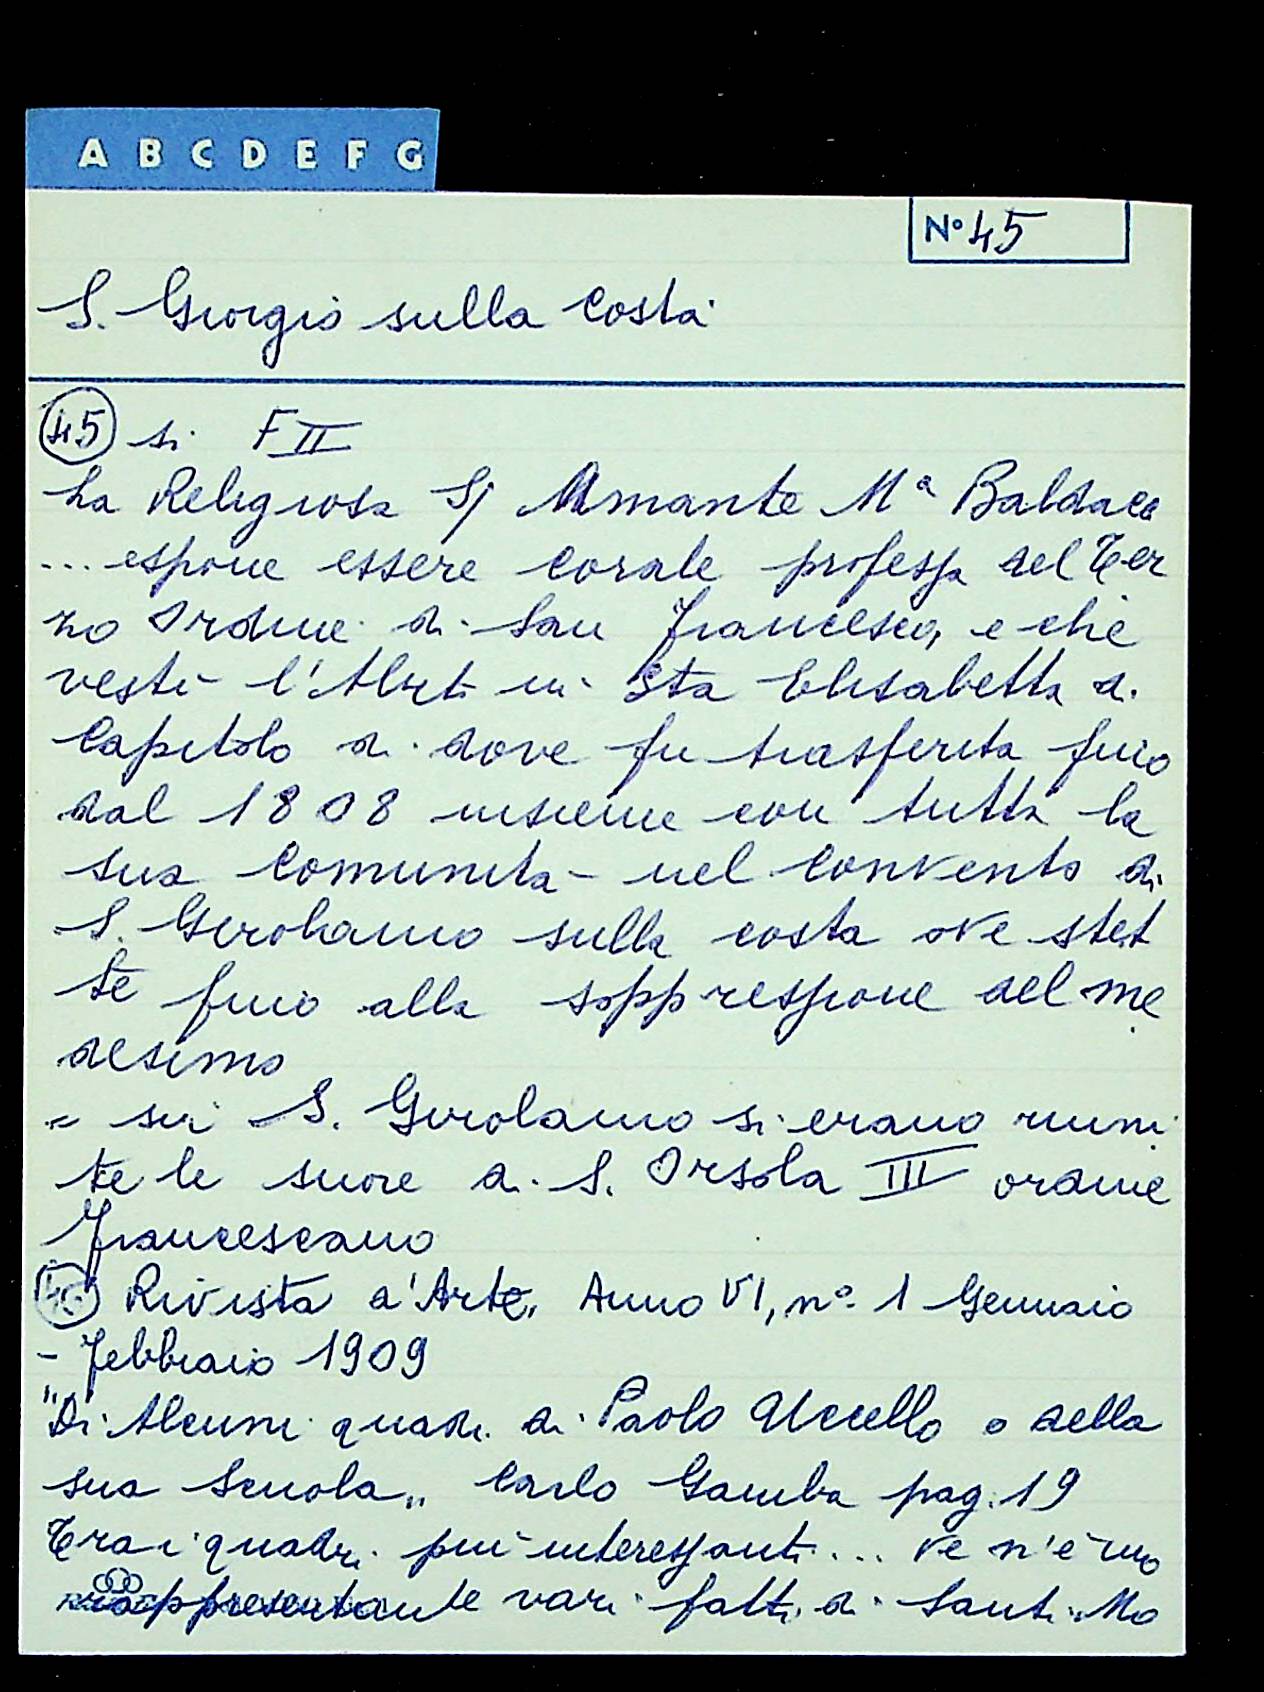 A B C D E F G
Nº 45
S. Giorgio sulla Costa
45 si F II
La Religiosa S/ Amante Mª Baldacc
... espone essere corale professa del Ter
zo Ordine di San Francesco, e che
vestì l'Abito in Sta Elisabetta di
Capitolo di dove fu trasferita fino
dal 1808 insieme con tutta la
sua Comunità nel Convento di
S. Girolamo sulla costa ove stet
te fino alla soppressione del me
desimo
= in S. Girolamo si erano riuni
te le suore di S. Orsola III ordine
Francescano
46 Rivista d'Arte, Anno VI, nº 1 Gennaio
- Febbraio 1909
"Di Alcuni quadri di Paolo Uccello o della
sua Scuola" Carlo Gamba pag. 19
Tra i quadri più interessanti ... ve n'è uno
rappresentante vari fatti di Santi Mo